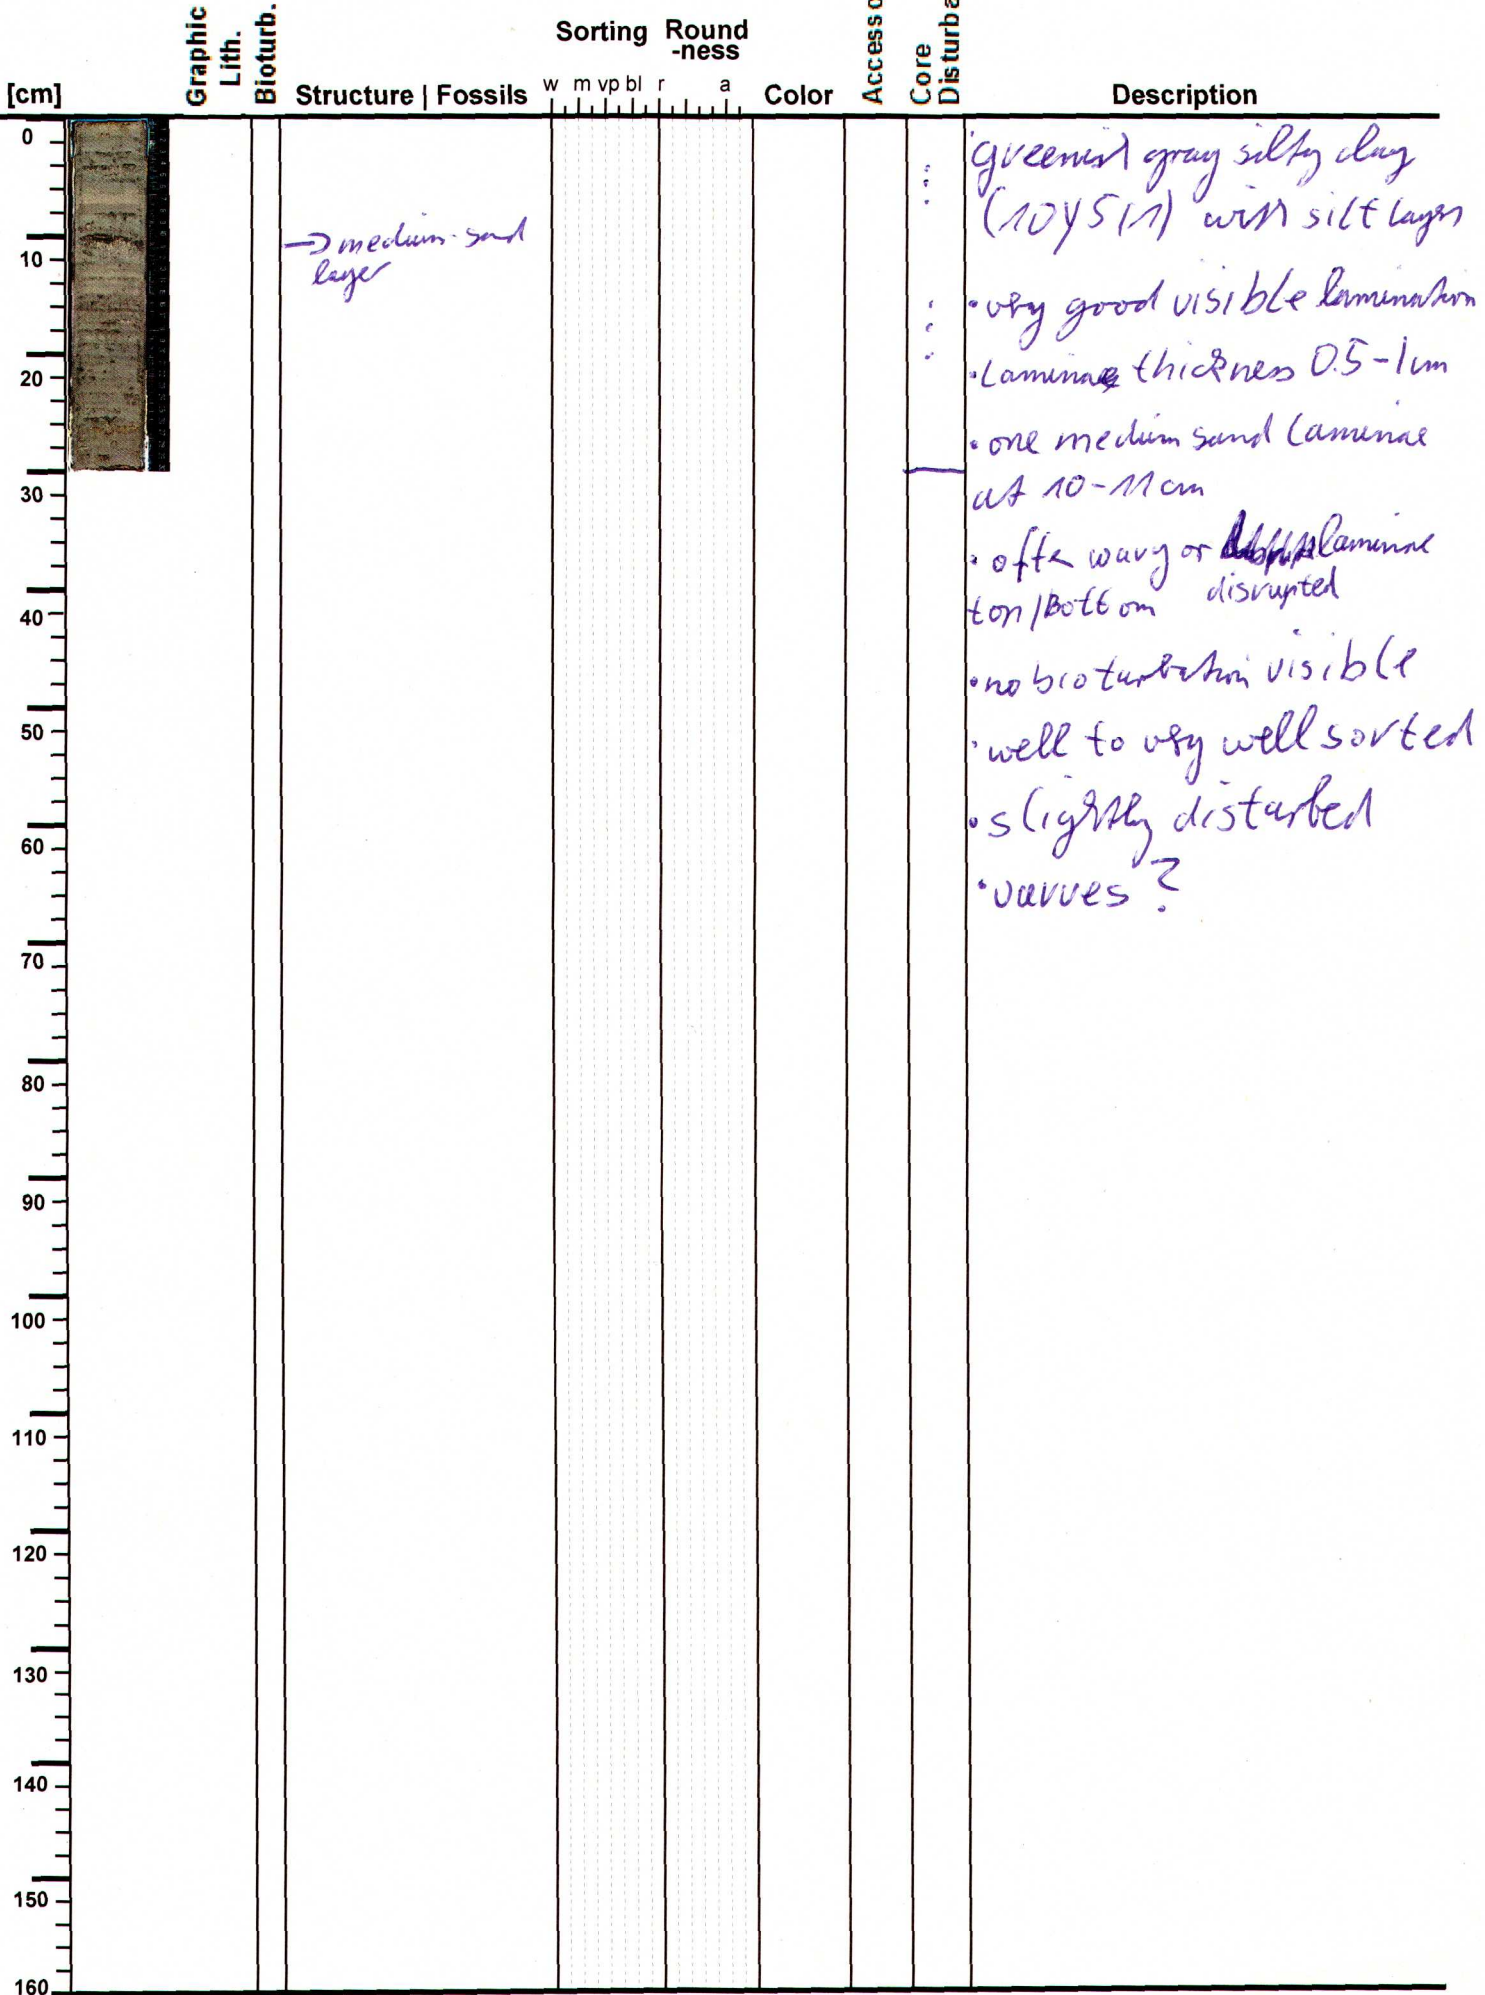 Graphic
Lith.
Bioturb.
Sorting Round
-ness
Core
Disturba
[cm]
Structure | Fossils
w m vp bl r a
Color
Accesso
Description
0
10
20
30
40
50
60
70
80
90
100
110
120
130
140
150
160
→ medium-sand
layer
greenish gray silty clay
(10Y 5/1) with silt layers
• very good visible lamination
• Laminae thickness 0.5-1cm
• one medium sand laminae
at 10-11cm
• often wavy or laminae
disrupted
top/Bottom
• no bioturbation visible
• well to very well sorted
• slightly disturbed
• varves ?